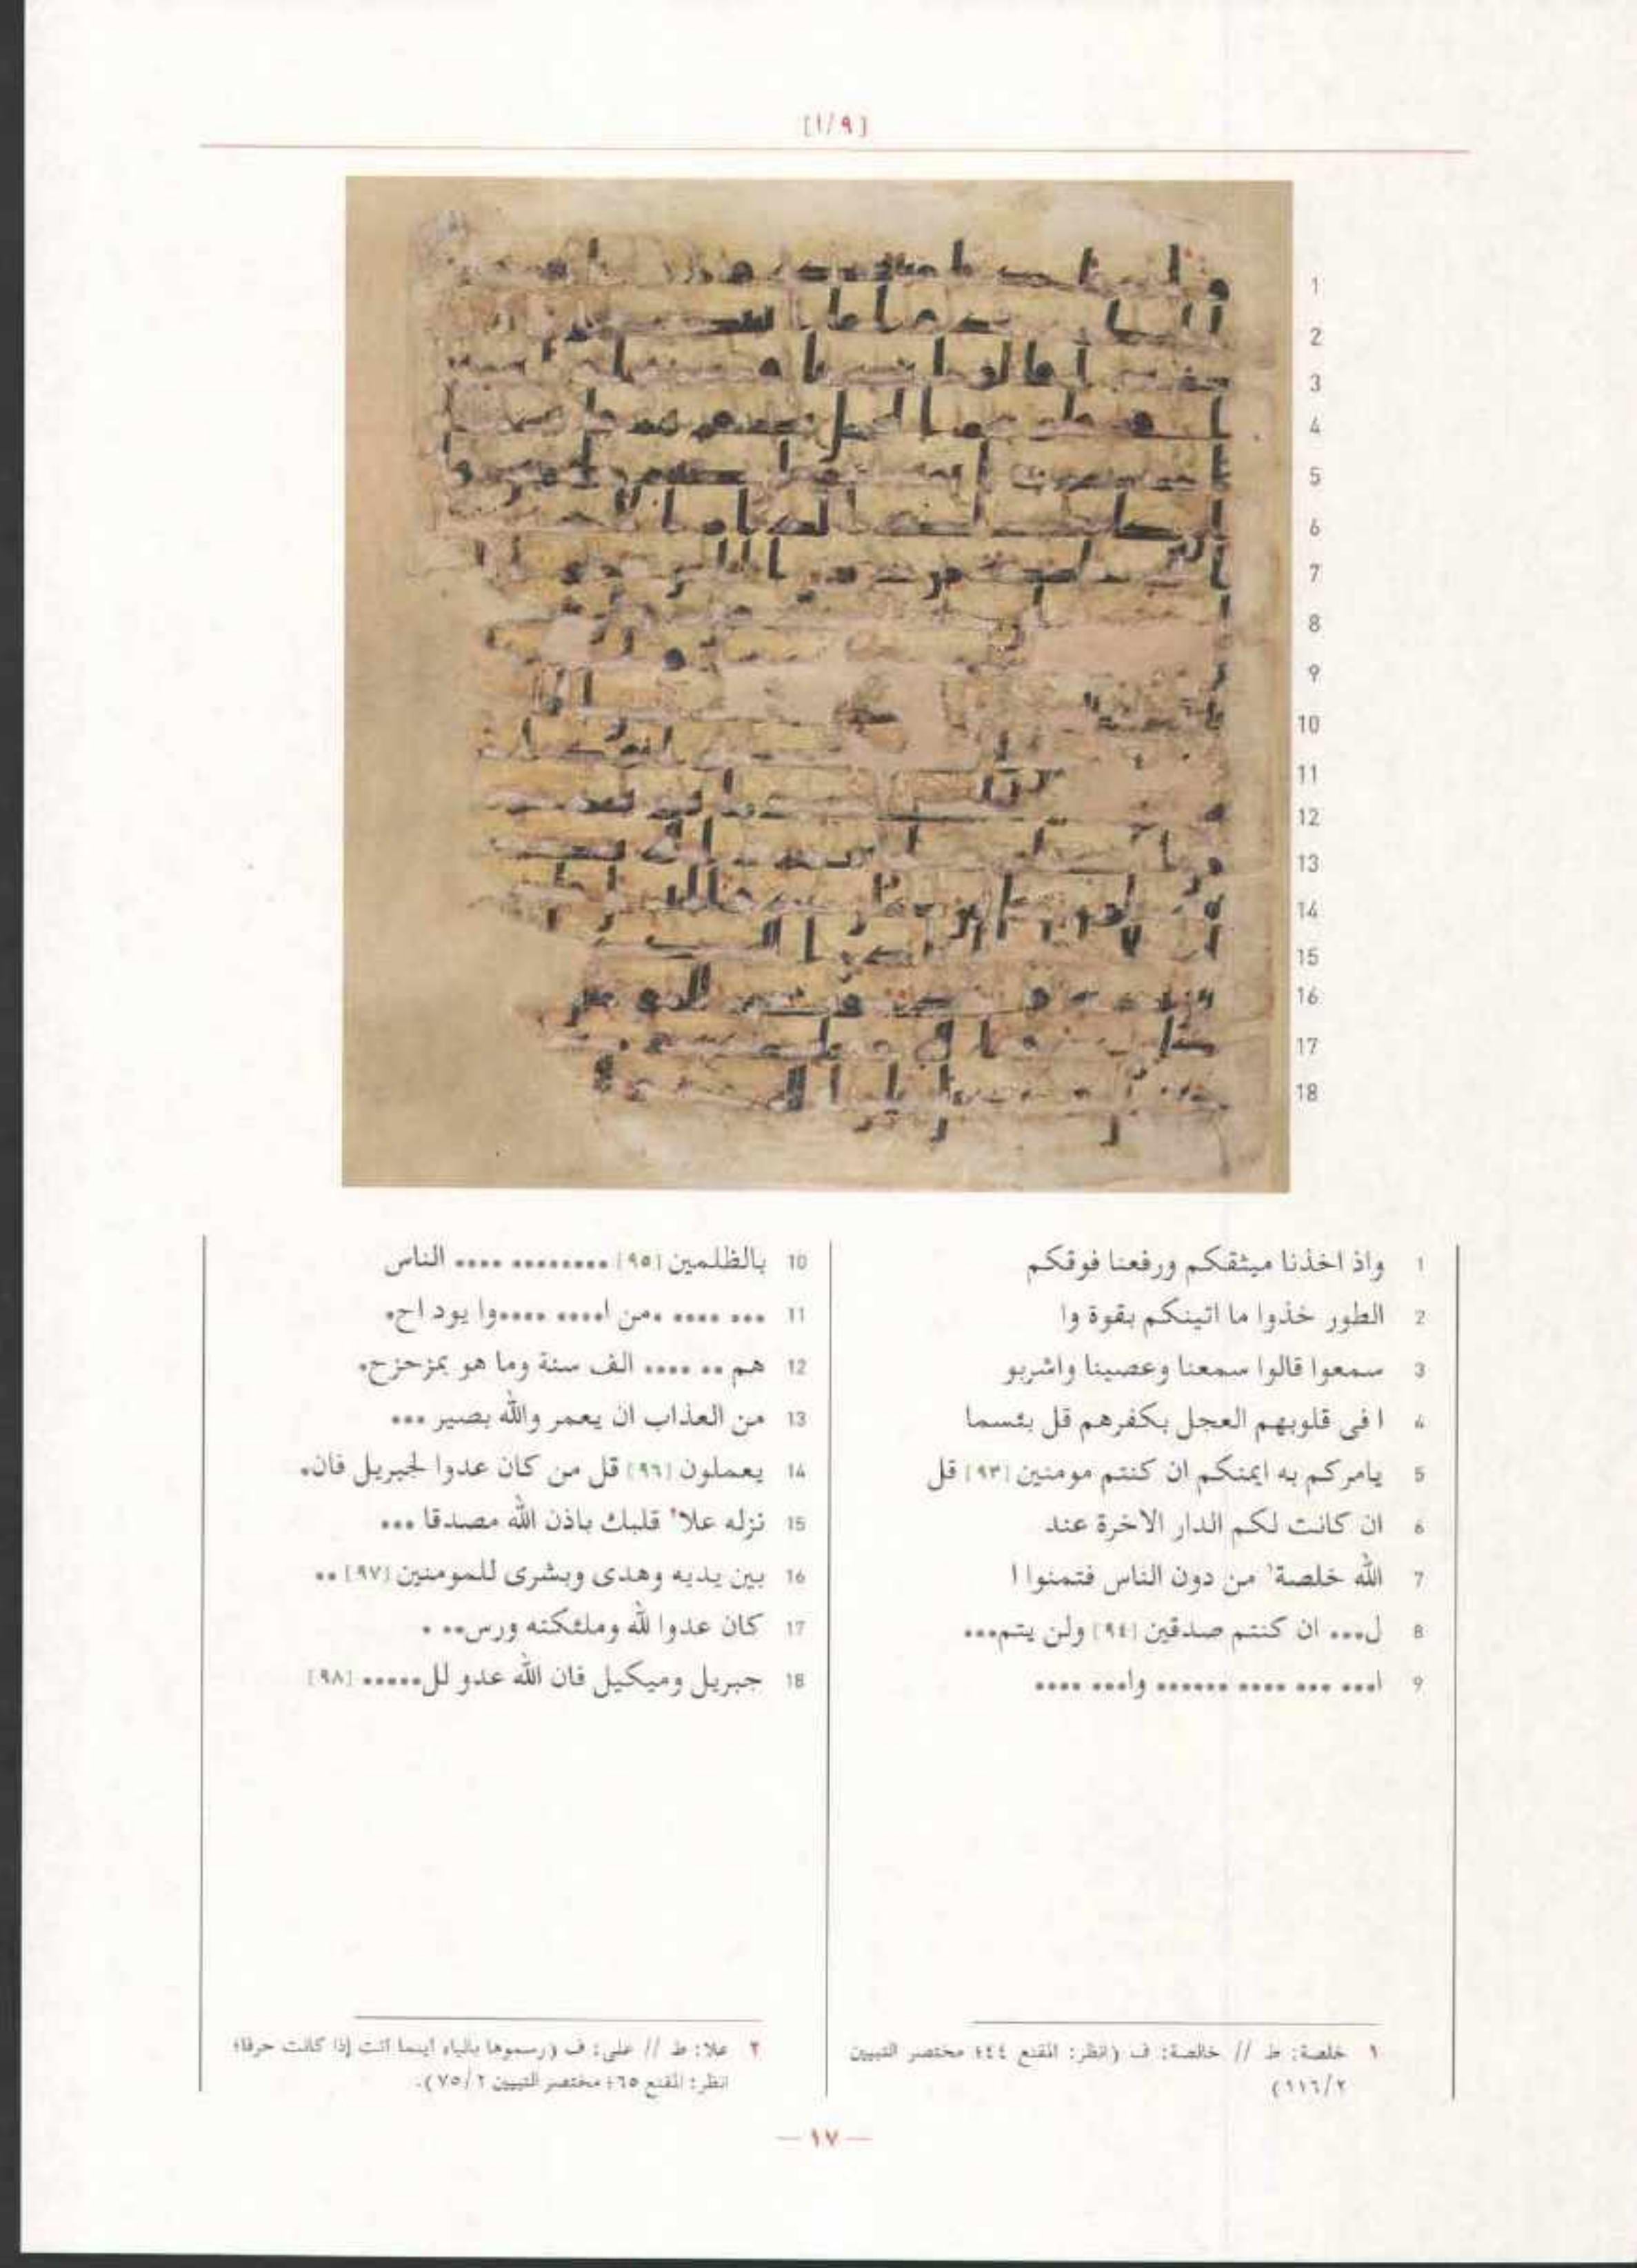 [١/٩]
1 واذ اخذنا ميثقكم ورفعنا فوقكم
2 الطور خذوا ما اتينكم بقوة وا
3 سمعوا قالوا سمعنا وعصينا واشربو
4 ا فى قلوبهم العجل بكفرهم قل بئسما
5 يامركم به ايمنكم ان كنتم مومنين [٩٣] قل
6 ان كانت لكم الدار الاخرة عند
7 الله خلصة١ من دون الناس فتمنوا ا
8 ل... ان كنتم صدقين [٩٤] ولن يتم...
9 ا... ... .... ...... وا... ....
10 بالظلمين [٩٥] ........ .... الناس
11 ... .... .من ا.... ....وا يود اح.
12 هم .. .... الف سنة وما هو بمزحزح.
13 من العذاب ان يعمر والله بصير ...
14 يعملون [٩٦] قل من كان عدوا لجبريل فان.
15 نزله علا٢ قلبك باذن الله مصدقا ...
16 بين يديه وهدى وبشرى للمومنين [٩٧] ..
17 كان عدوا لله وملئكته ورس.. .
18 جبريل وميكيل فان الله عدو لل..... [٩٨]
١ خلصة: ط // خالصة: ف (انظر: المقنع ٤٤؛ مختصر التبيين
٩١٦/٢)
٢ علا: ط // على: ف (رسموها بالياء اينما اتت إذا كانت حرفا؛
انظر: المقنع ٦٥؛ مختصر التبيين ٧٥/٢).
— ١٧ —